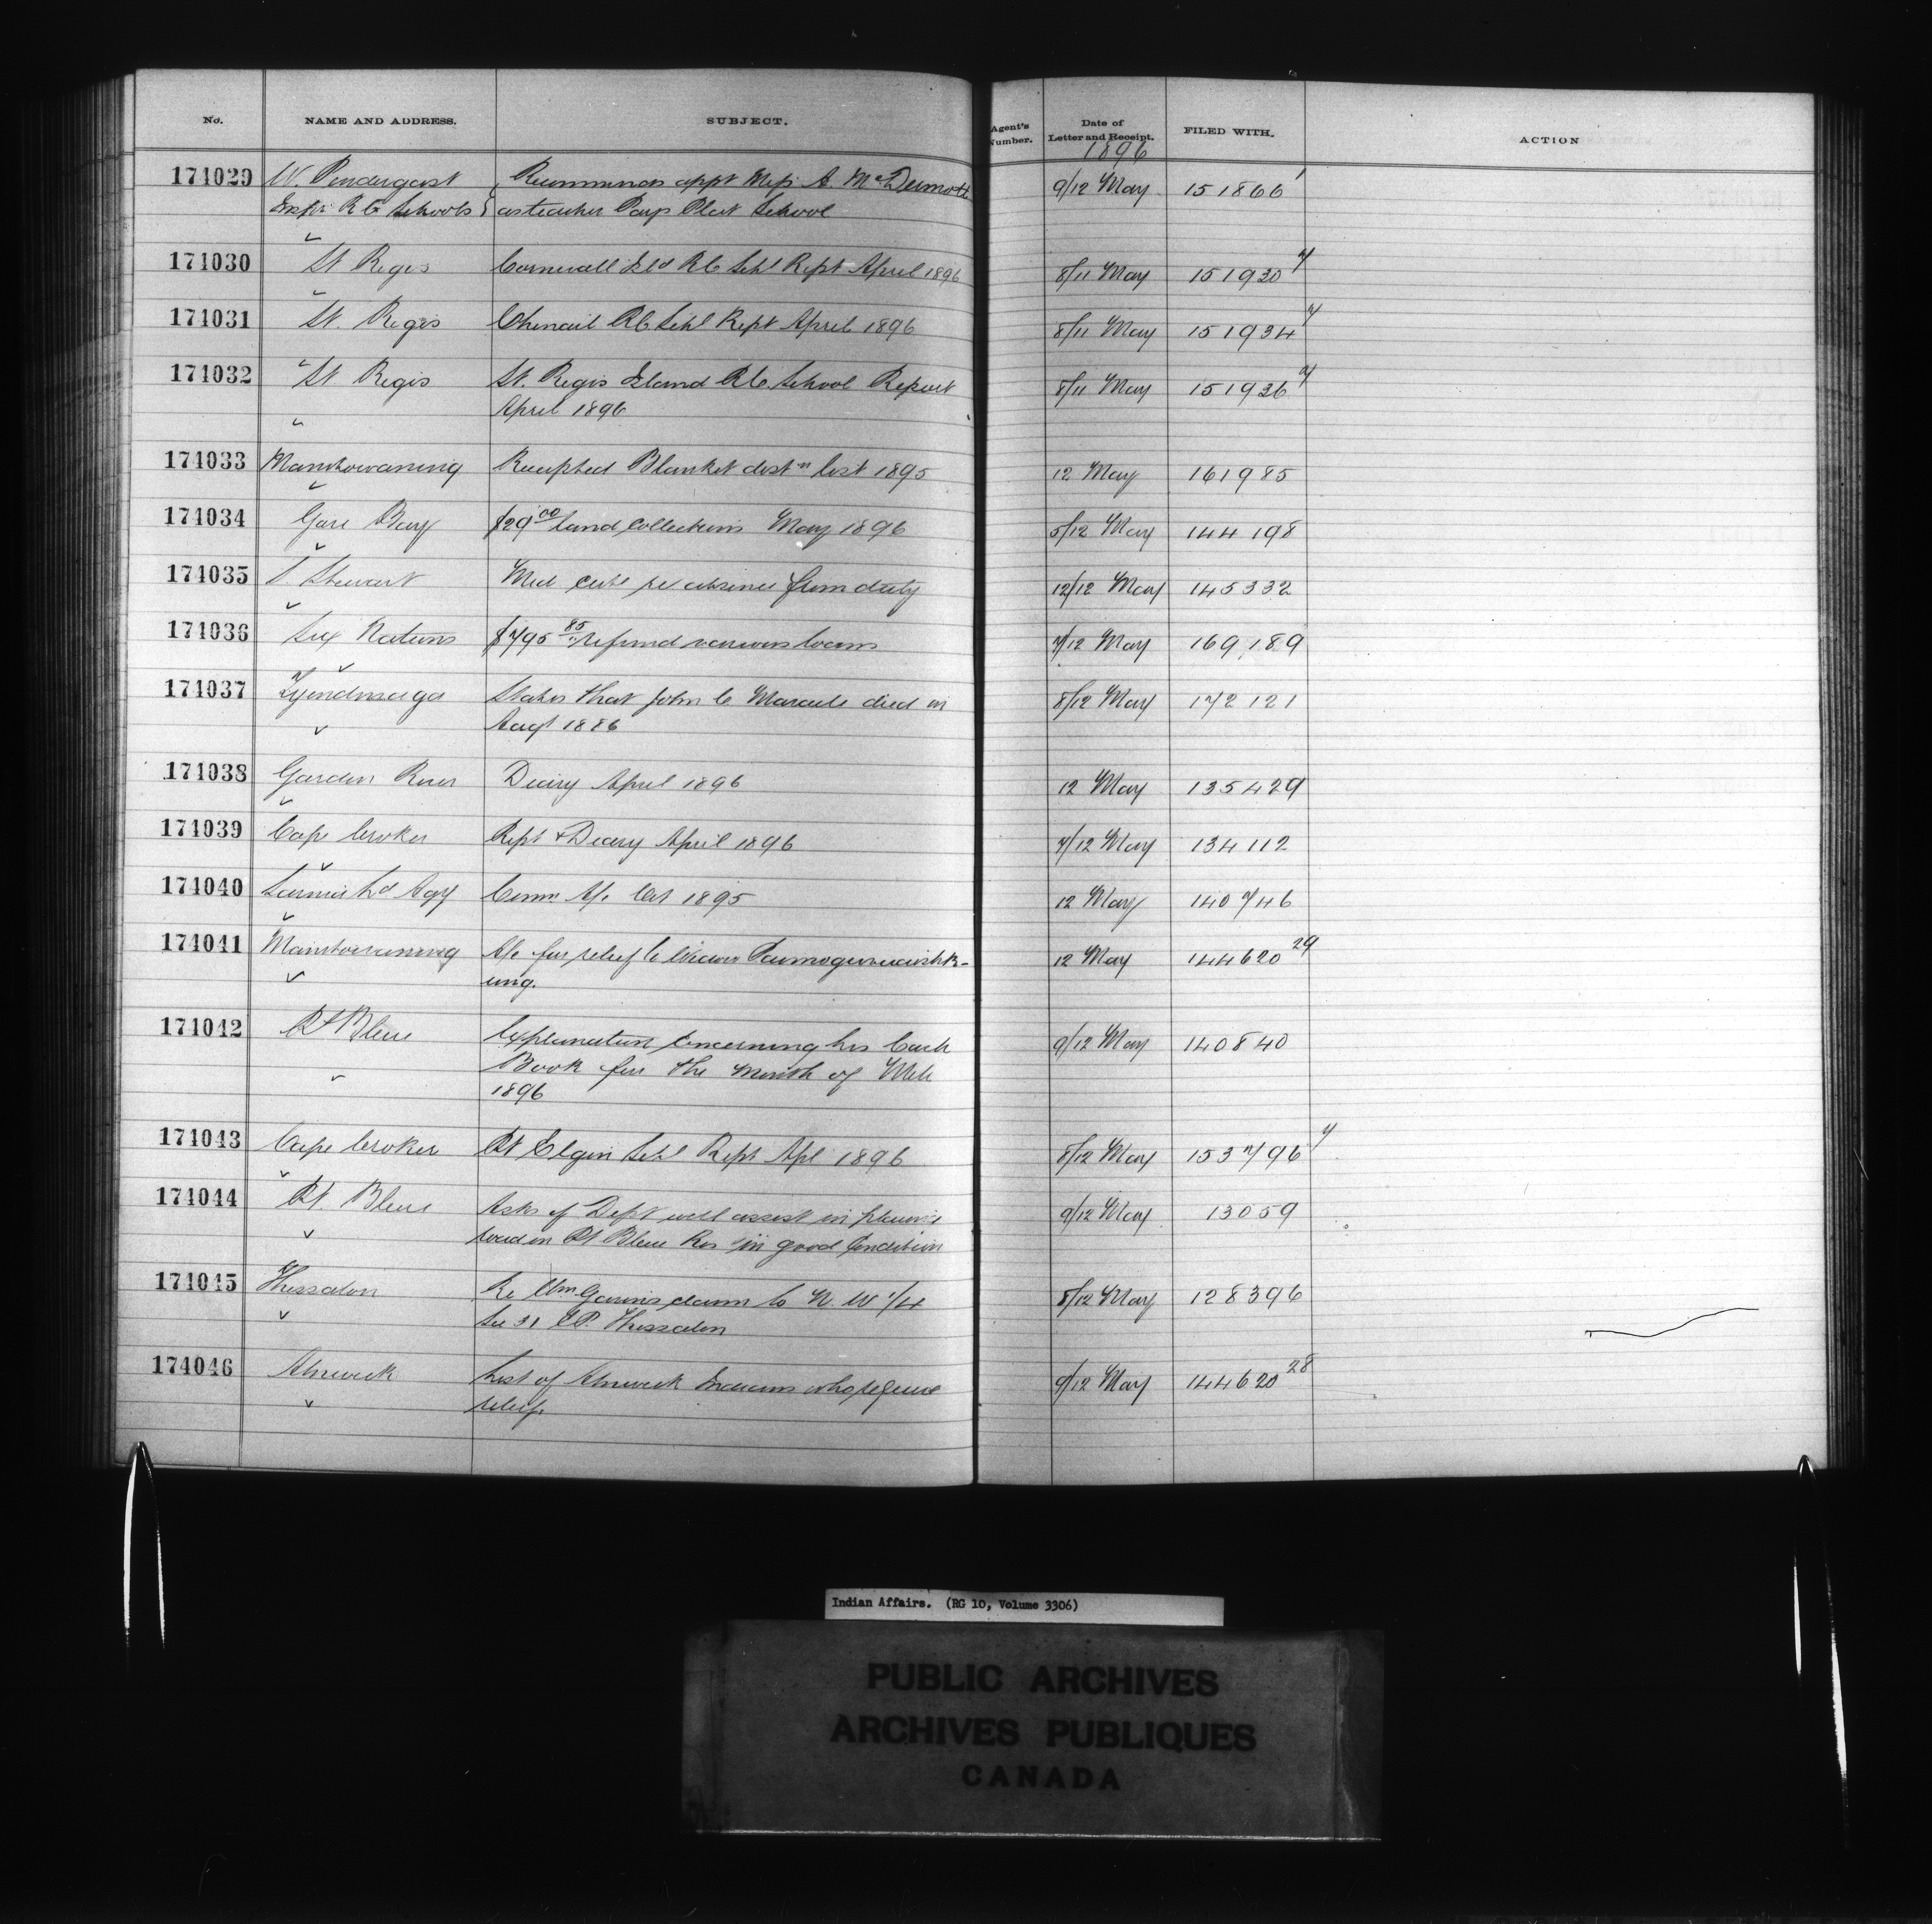 No. NAME AND ADDRESS. SUBJECT. Agent's Number. Date of Letter and Receipt. FILED WITH. ACTION
1896
174029 W. Pendergast Recommends appt Miss A. McDermott 9/12 May 151866 1
Inspr. R C Schools as teacher Pays Plat School
174030 St Regis Cornwall Isld R C Schl Rept April 1896 8/11 May 151930 7
174031 St. Regis Chenail R C Schl Rept April 1896 8/11 May 151934 7
174032 St Regis St. Regis Island R C. School Report 8/11 May 151936 7
April 1896
174033 Manitowaning Receipted Blanket distn list 1895 12 May 161985
174034 Gore Bay $29 00 land collections May 1896 5/12 May 144198
174035 J. Stewart Med cert re absence from duty 12/12 May 145332
174036 Six Nations $795 85 refund various loans 7/12 May 169189
174037 Tyendinaga States that John C Maracle died in 8/12 May 172121
Augt 1886
174038 Garden River Diary April 1896 12 May 135429
174039 Cape Croker Rept & Diary April 1896 7/12 May 134112
174040 Sarnia Ld Agy Comn A/c Oct 1895 12 May 140746
174041 Manitowaning A/c for relief to 12 May 144620 29
ung.
174042 Pt Bleue Explanation concerning his Cash 9/12 May 140840
Book for the month of Mch
1896
174043 Cape Croker Pt Elgin Schl Rept Apl 1896 8/12 May 153796 7
174044 Pt. Bleue Asks if Dept will assist in 9/12 May 13059
road on Pt Bleue Res in good condition
174045 Thessalon Re Wm claim to N. W 1/4 8/12 May 128396
Sec 31 Thessalon
174046 Alnwick List of Alnwick Indians who require 9/12 May 144620 28
relief.
Indian Affairs. (RG 10, Volume 3306)
PUBLIC ARCHIVES
ARCHIVES PUBLIQUES
CANADA